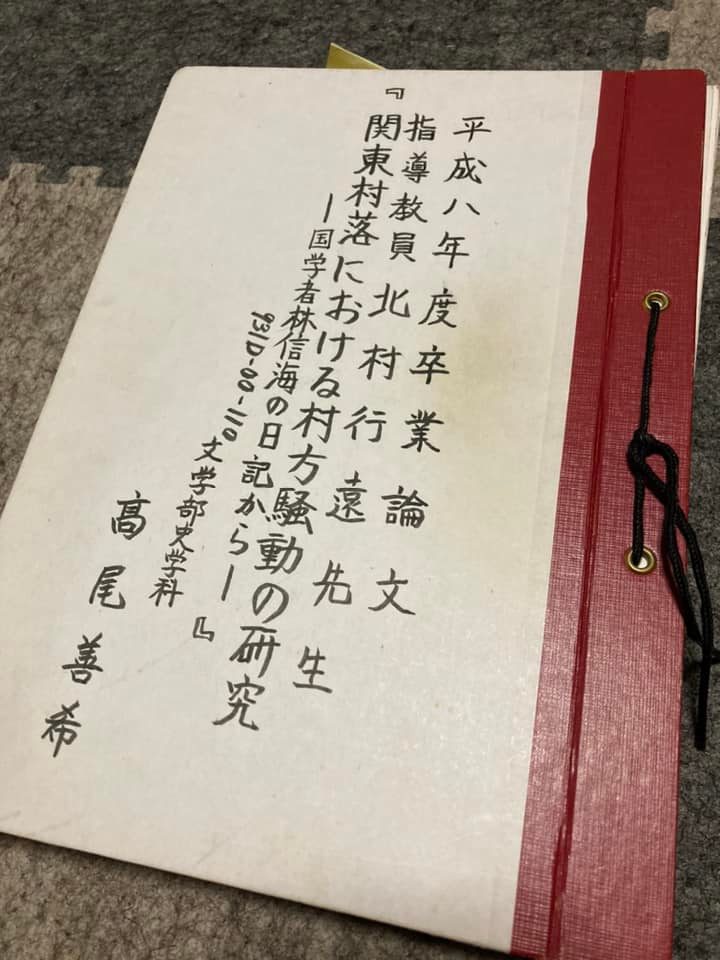 平成八年度卒業論文
指導教員北村行遠先生
『関東村落における村方騒動の研究
ー国学者林信海の日記からー』
931D-00-110 文学部史学科
髙尾善希